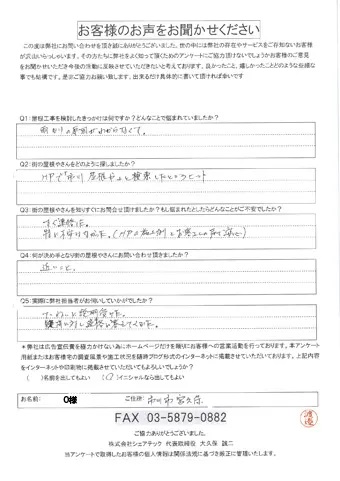 お客様のお声をお聞かせください
この度は弊社にお問い合わせを頂き誠にありがとうございました。世の中には弊社の存在やサービスをご存知ないお客様
が沢山いらっしゃいます。その方たちに弊社をよく知って頂くためのアンケートにご協力頂けないでしょうかお客様のご意見
をお聞かせいただき今後の活動に反映させていただきたいと考えております。良かったこと、嬉しかったことどのような些細な
事でも結構です。是非ご協力お願い致します。出来るだけ具体的に書いて頂ければ幸いです
Q1:屋根工事を検討したきっかけは何ですか?どんなことで悩まれていましたか?
雨もりの原因がわからなくて。
Q2:街の屋根やさんをどのように探しましたか?
HPで「市川 屋根や」と検索したところヒット
Q3:街の屋根やさんを知りすぐにお問合せ頂けましたか?もし悩まれたとしたらどんなことがご不安でしたか?
すぐ連絡した。
Q4:何が決め手となり街の屋根やさんにお問い合わせ頂きましたか?
近いこと。
Q5:実際に弊社担当者がお伺いしていかがでしたか?
*弊社では広告宣伝費を極力かけない為にホームページだけを頼りにお客様への営業活動を行っております。本アンケート
用紙またはお客様宅の調査風景や施工状況を随時ブログ形式のインターネットに掲載させていただいております。上記内容
をインターネットや印刷物に掲載させていただいてもよろしいでしょうか?
( )名前を出してもよい (○)イニシャルなら出してもよい
お名前: O様 ご住所: 市川市宮久保
FAX 03-5879-0882
ご協力ありがとうございました。
株式会社シェアテック 代表取締役 大久保 誠二
当アンケートで取得したお客様の個人情報は関係法規に基づき厳正に管理いたします。